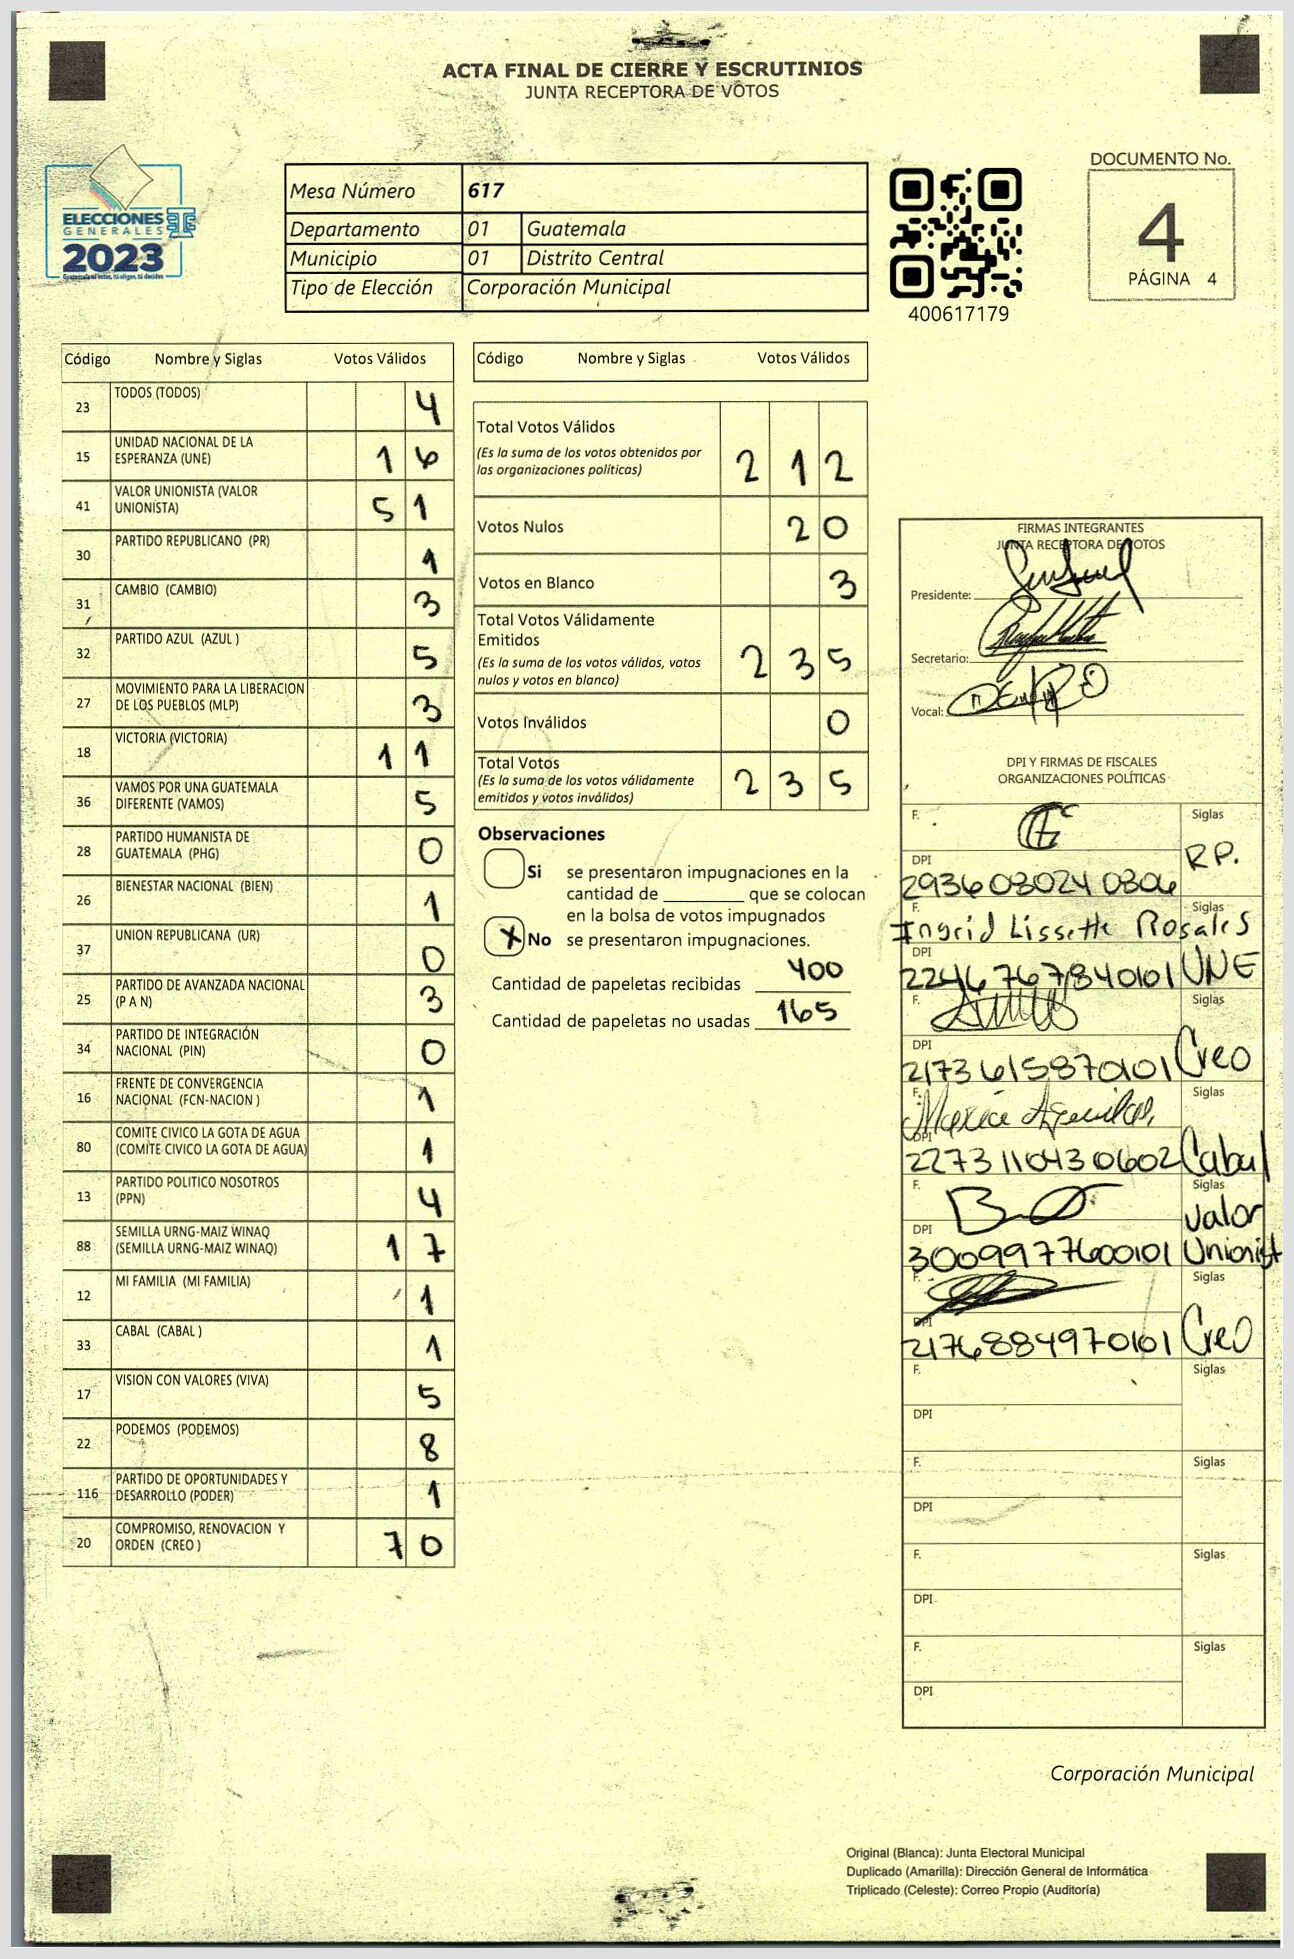 ACTA FINAL DE CIERRE Y ESCRUTINIOS
JUNTA RECEPTORA DE VOTOS
ELECCIONES
GENERALES
2023
Mesa Número 617
Departamento 01 Guatemala
Municipio 01 Distrito Central
Tipo de Elección Corporación Municipal
400617179
DOCUMENTO No.
4
PÁGINA 4
Código Nombre y Siglas Votos Válidos
23 TODOS (TODOS) 4
15 UNIDAD NACIONAL DE LA ESPERANZA (UNE) 16
41 VALOR UNIONISTA (VALOR UNIONISTA) 51
30 PARTIDO REPUBLICANO (PR) 1
31 CAMBIO (CAMBIO) 3
32 PARTIDO AZUL (AZUL ) 5
27 MOVIMIENTO PARA LA LIBERACION DE LOS PUEBLOS (MLP) 3
18 VICTORIA (VICTORIA) 11
36 VAMOS POR UNA GUATEMALA DIFERENTE (VAMOS) 5
28 PARTIDO HUMANISTA DE GUATEMALA (PHG) 0
26 BIENESTAR NACIONAL (BIEN) 1
37 UNION REPUBLICANA (UR) 0
25 PARTIDO DE AVANZADA NACIONAL (P A N) 3
34 PARTIDO DE INTEGRACIÓN NACIONAL (PIN) 0
16 FRENTE DE CONVERGENCIA NACIONAL (FCN-NACION ) 1
80 COMITE CIVICO LA GOTA DE AGUA (COMITE CIVICO LA GOTA DE AGUA) 1
13 PARTIDO POLITICO NOSOTROS (PPN) 4
88 SEMILLA URNG-MAIZ WINAQ (SEMILLA URNG-MAIZ WINAQ) 17
12 MI FAMILIA (MI FAMILIA) 1
33 CABAL (CABAL ) 1
17 VISION CON VALORES (VIVA) 5
22 PODEMOS (PODEMOS) 8
116 PARTIDO DE OPORTUNIDADES Y DESARROLLO (PODER) 1
20 COMPROMISO, RENOVACION Y ORDEN (CREO ) 70
Código Nombre y Siglas Votos Válidos
Total Votos Válidos
(Es la suma de los votos obtenidos por
las organizaciones políticas) 212
Votos Nulos 20
Votos en Blanco 3
Total Votos Válidamente
Emitidos
(Es la suma de los votos válidos, votos
nulos y votos en blanco) 235
Votos Inválidos 0
Total Votos
(Es la suma de los votos válidamente
emitidos y votos inválidos) 235
Observaciones
Si se presentaron impugnaciones en la
cantidad de ________ que se colocan
en la bolsa de votos impugnados
X No se presentaron impugnaciones.
Cantidad de papeletas recibidas 400
Cantidad de papeletas no usadas 165
FIRMAS INTEGRANTES
JUNTA RECEPTORA DE VOTOS
Presidente:
Secretario:
Vocal:
DPI Y FIRMAS DE FISCALES
ORGANIZACIONES POLÍTICAS
F. Siglas
DPI R.P.
2936080240306
F. Siglas
Ingrid Lissette Rosales
DPI
2246767840101 UNE
F. Siglas
DPI
2173615870101 Creo
F. Siglas
Maria Aguilar
DPI
2273110430602 Cabal
F. Siglas
DPI Valor
3009977600101 Unionist
F. Siglas
DPI
2176884970101 Creo
F. Siglas
DPI
F. Siglas
DPI
F. Siglas
DPI
F. Siglas
DPI
Corporación Municipal
Original (Blanca): Junta Electoral Municipal
Duplicado (Amarilla): Dirección General de Informática
Triplicado (Celeste): Correo Propio (Auditoría)